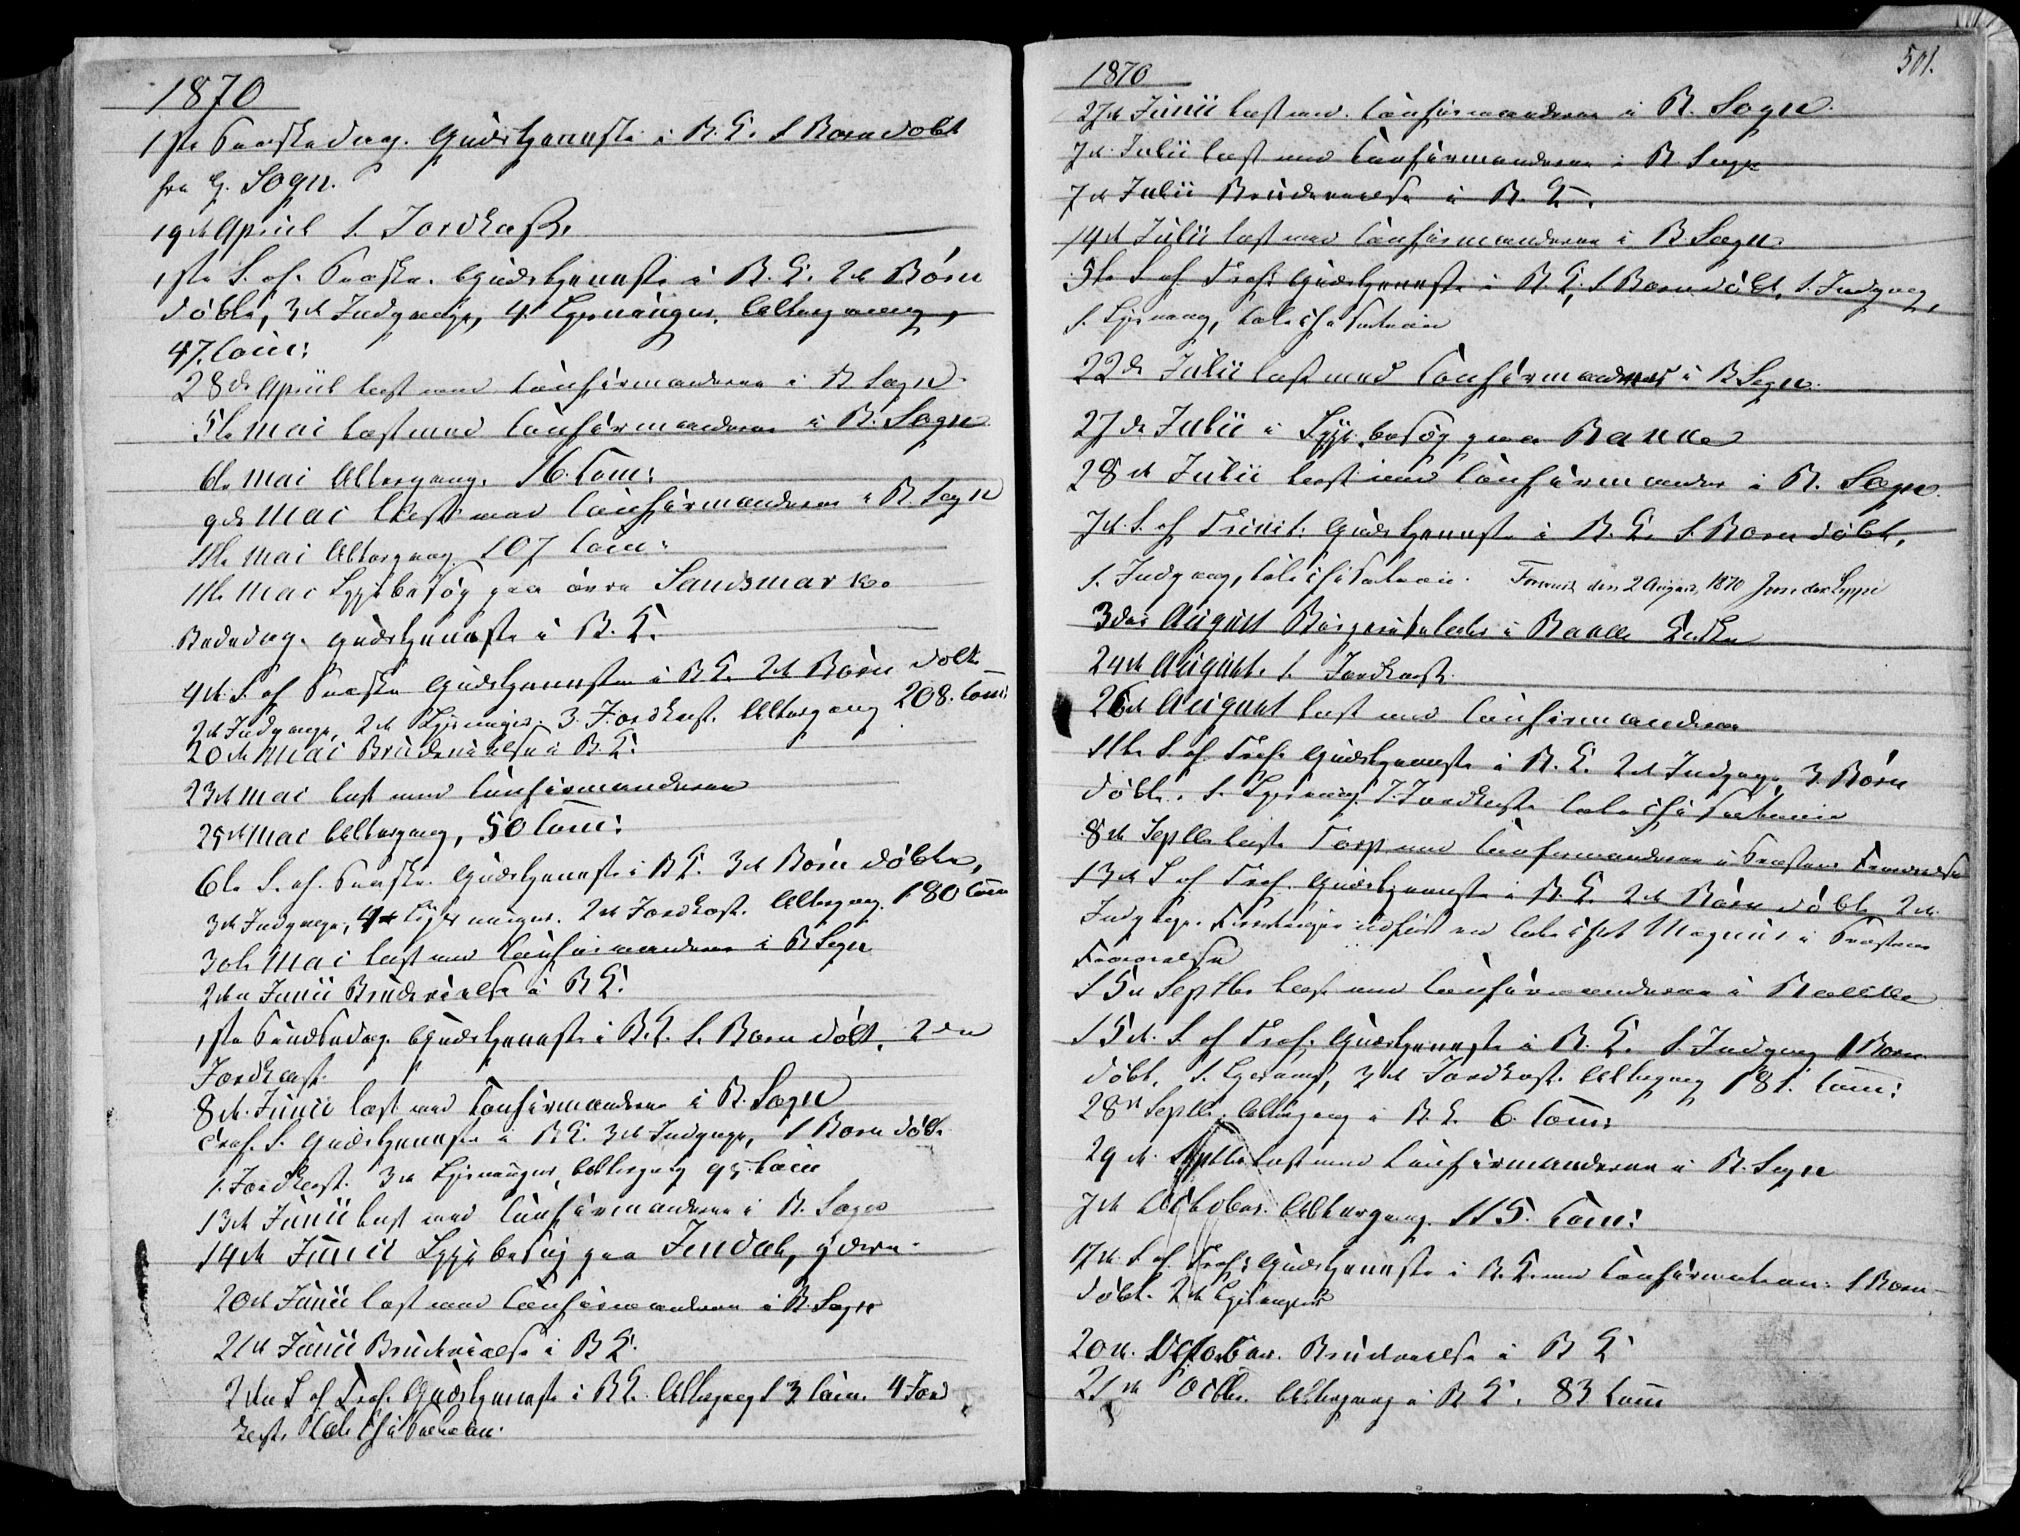 1870
1ste Paaskedag. Gudstjeneste i B. K. 1 Barn døbt
fra G. Sogn.
19de April 1. Jordkast.
1ste S. ef. Paaske. Gudstjeneste i B. K. 2de Børn
døbte, 3de Indgange, 4. Kjerninger. Altergang,
47. Com:
28de April læst med Confirmanderne i B Sogn.
5te Mai læst med Confirmanderne i B. Sogn.
6te Mai Altergang. 16. Com:
9de Mai læst med Confirmanderne i B. Sogn
11te Mai Altergang 107 Com:
11te Mai Sygebesøg paa øvre Sandsmark.
Bededag. Gudstjeneste i B. K.
4de S. ef Paaske Gudstjeneste i B K. 2de Børn døbte
2de Indgange, 2de Kjerninger. 3. Jordkast. Altergang 208. Com:
20de Mai Brudevielse i B K.
23de Mai læst med Confirmanderne
25de Mai Altergang, 50 Com:
6te S. ef. Paaske. Gudstjeneste i B K. 3de Børn døbte,
3de Indgange, 4de Kjerninger. 2de Jordkast. Altergang. 180 Com
30te Mai læst med Confirmanderne i B Sogn
2den Junii Brudevielse i B K.
1ste Pindsedag. Gudstjeneste i B. K. 1. Barn døbt. 2den
Jordkast.
8de Junii læst med Confirmanderne i B. Sogn
Tref. S. Gudstjeneste i B K. 3de Indgange, 1 Barn døbt.
1. Jordkast. 3de Kjerninger, Altergang 95 Com
13de Junii læst med Confirmanderne i B. Sogn
14de Junii Sygebesøg paa Jendal, ydern.
20de Junii læst med Confirmanderne i B. Sogn
21de Junii Brudevielse i B K.
2den S ef Tref. Gudstjeneste i B K. Altergang 13 Com. 4 Jord
kast. Catechisation.
1870
501.
27de Junii læst med Confirmanderne i B. Sogn.
7de Julii læst med Confirmanderne i B Sogn
7de Julii Brudevielse i B. K.
14de Julii læst med Confirmanderne i B Sogn.
5te S ef Tref. Gudstjeneste i B K, 1 Barn døbt, 1. Indgang,
1. Kjerning, Catechisation
22de Julii læst med Confirmanderne i B Sogn.
27de Julii i Sygebesøg paa
28de Julii læst med Confirmander i B. Sogn.
7de S. ef Trinit. Gudstjeneste i B. K. 1 Barn døbt,
1. Indgang, Catechisation. den 2 August 1870
3die August i Kirke
24de August. 1. Jordkast.
26de August læst med Confirmanderne
11te S. ef. Tref. Gudstjeneste i B. K. 2de Indgange, 3. Børn
døbte. 1. Kjerning. 7. Jordkast. Catechisation
8de Septbr læste Torp med Confirmanderne i Præstens Fraværelse
13de S ef Tref. Gudstjeneste i B. K. 2de Børn døbte 2de
Indgange. Forretninger udført ved Magnus i Præstens
Fraværelse
15de Septbr læst med Confirmanderne i
15de S. ef Tref. Gudstjeneste i B. K. 1. Indgang 1 Barn
døbt. 1. Kjerning, 3de Jordkast. Altergang 181. Com:
28de Septbr. Altergang i B. K. 6. Com:
29de Septbr læst med Confirmanderne i B. Sogn
7de October Altergang. 115. Com:
17de S. ef. Tref. Gudstjeneste i B. K. med Confirmation. 1 Barn
døbt. 2de Kjerninger
20de October. Brudevielse i B K
21de Octbr. Altergang i B K. 83 Com